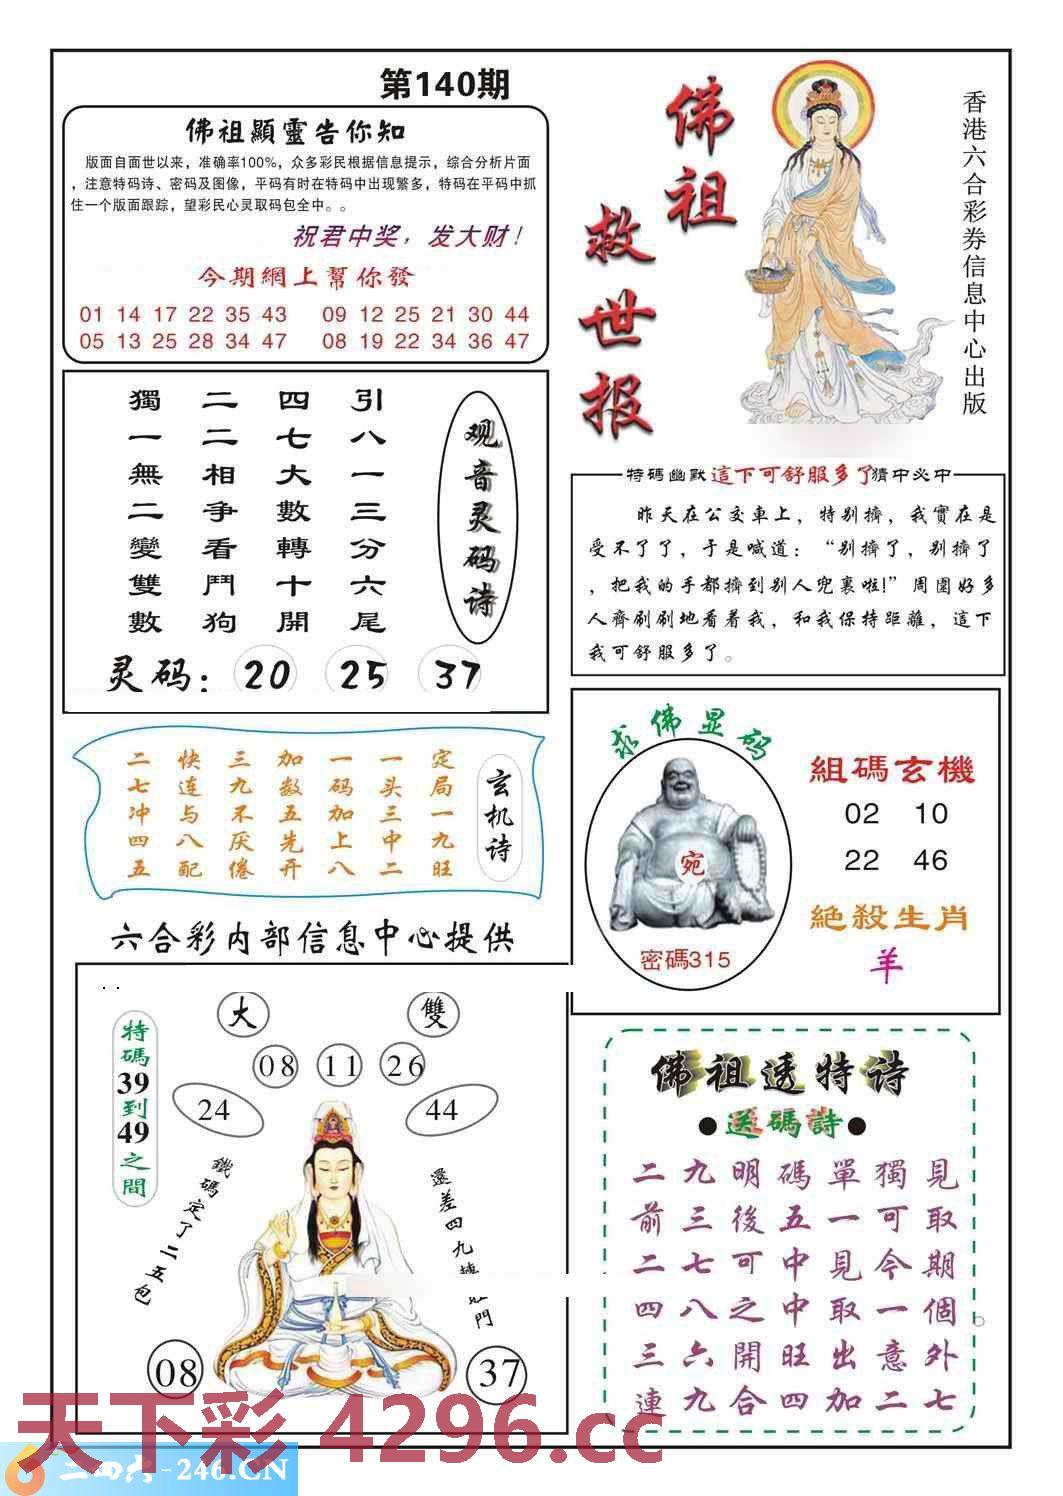 第140期
佛祖顯靈告你知
版面自面世以来，准确率100%，众多彩民根据信息提示，综合分析片面
，注意特码诗、密码及图像，平码有时在特码中出现繁多，特码在平码中抓
住一个版面跟踪，望彩民心灵取码包全中。。
祝君中奖，发大财！
今期網上幫你發
01 14 17 22 35 43 09 12 25 21 30 44
05 13 25 28 34 47 08 19 22 34 36 47
佛祖
救世报
香港六合彩券信息中心出版
观音灵码诗
引八一三分六尾
四七大數轉十開
二二相争看鬥狗
獨一無二變雙數
灵码：20 25 37
特碼幽默這下可舒服多了猜中必中
昨天在公交車上，特别擠，我實在是
受不了了，于是喊道：“别擠了，别擠了
，把我的手都擠到别人兜裏啦!”周圍好多
人齊刷刷地看着我，和我保持距離，這下
我可舒服多了。
玄机诗
定局一九旺
一头三中二
一码加上八
加数五先开
三九不厌倦
快连与八配
二七冲四五
求佛显码
宛
密碼315
組碼玄機
02 10
22 46
絕殺生肖
羊
六合彩内部信息中心提供
特碼39到49之間
大 雙
08 11 26
24 44
鐵碼定了二五包
還差四九轉 門
08 37
佛祖透特诗
●送碼詩●
二九明碼單獨見
前三後五一可取
二七可中見今期
四八之中取一個
三六開旺出意外
連九合四加二七
天下彩 4296.cc
二四六-246.CN